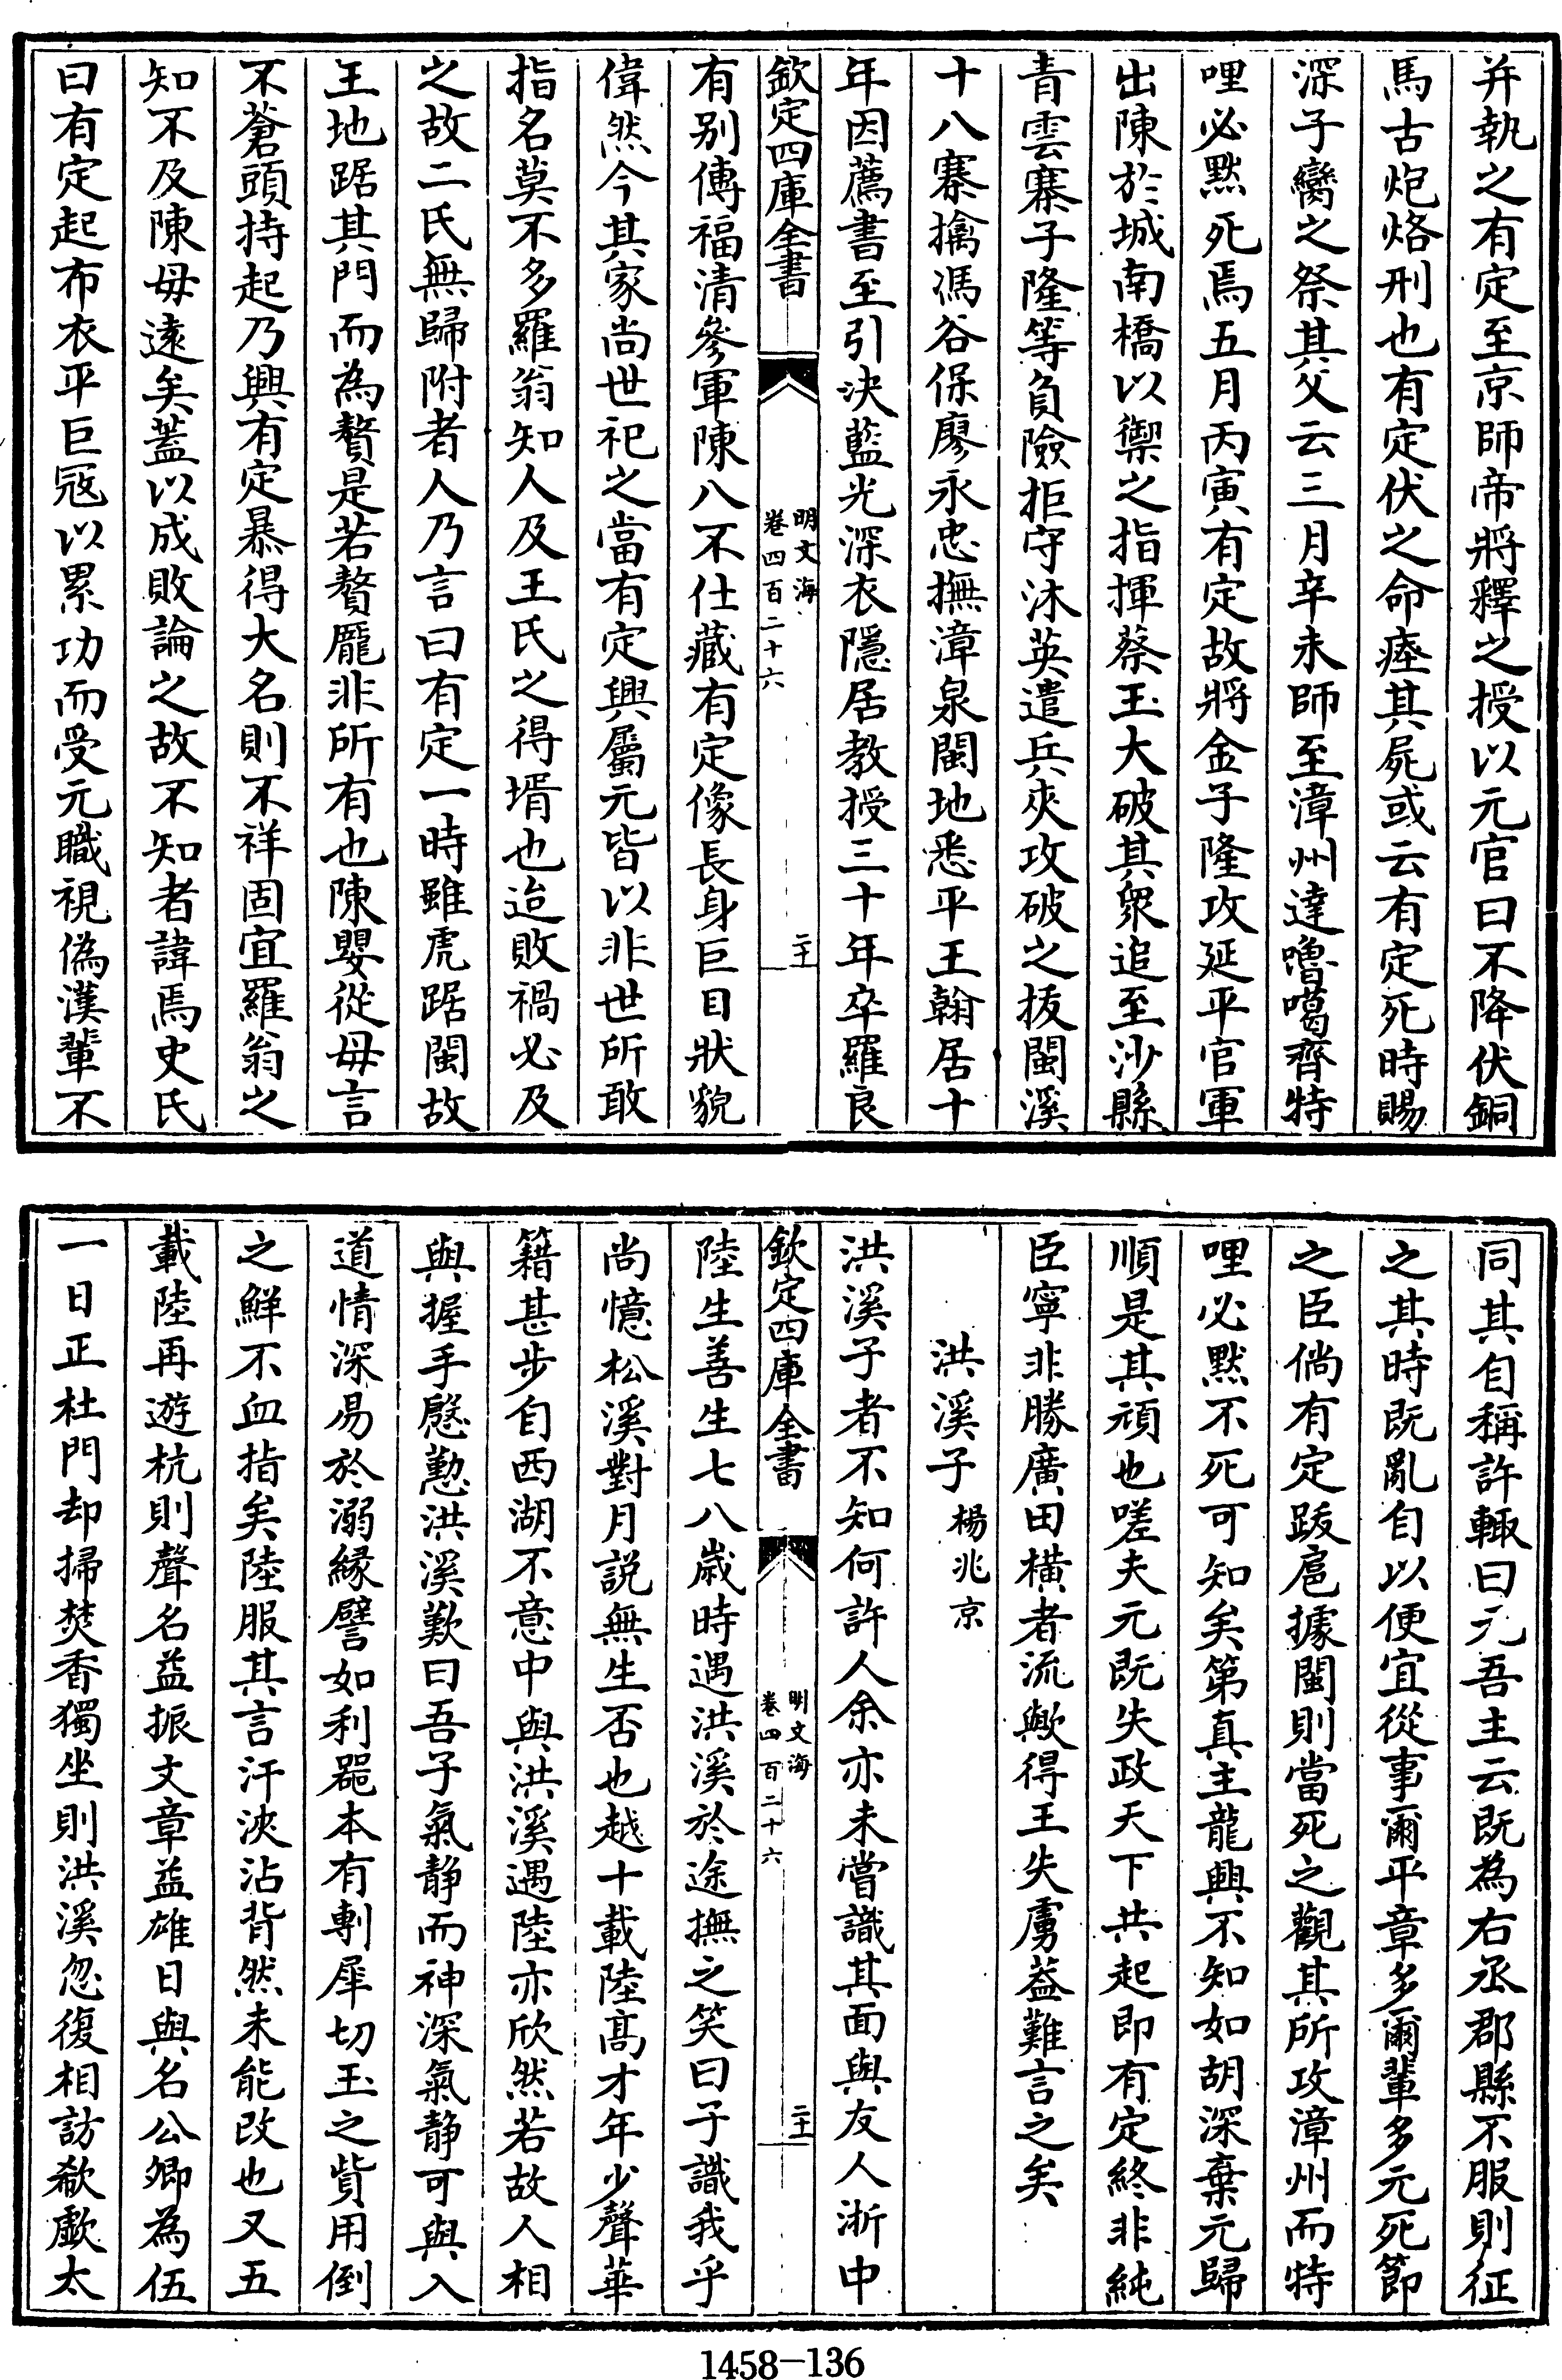 并執之有定至京師帝將釋之授以元官曰不降伏銅
馬古炮烙刑也有定伏之命瘞其屍或云有定死時賜
深子臠之祭其父云三月辛未師至漳州達嚕噶齊特
哩必黙死焉五月丙寅有定故將金子隆攻延平官軍
出陳於城南橋以禦之指揮蔡玉大破其衆追至沙縣
青雲寨子隆等負險拒守沐英遣兵夾攻破之拔閩溪
十八寨擒馮谷保廖永忠撫漳泉閩地悉平王翰居十
年因薦書至引決藍光深衣隱居教授三十年卒羅良
欽定四庫全書
明文海
卷四百二十六
二十
有别傳福清參軍陳八不仕藏有定像長身巨目狀貌
偉然今其家尚世祀之當有定興屬元皆以非世所敢
指名莫不多羅翁知人及王氏之得壻也迨敗禍必及
之故二氏無歸附者人乃言曰有定一時雖虎踞閩故
王地踞其門而為贅是若贅龎非所有也陳嬰從母言
不蒼頭持起乃興有定暴得大名則不祥固宜羅翁之
知不及陳母遠矣蓋以成敗論之故不知者諱焉史氏
曰有定起布衣平巨冦以累功而受元職視偽漢輩不
同其自稱許輙曰元吾主云既為右丞郡縣不服則征
之其時既亂自以便宜從事爾平章多爾輩多元死節
之臣倘有定跋扈據閩則當死之觀其所攻漳州而特
哩必黙不死可知矣第真主龍興不知如胡深棄元歸
順是其頑也嗟夫元既失政天下共起即有定終非純
臣寧非勝廣田横者流歟得王失虜益難言之矣
洪溪子 楊兆京
洪溪子者不知何許人余亦未嘗識其面與友人浙中
欽定四庫全書
明文海
卷四百二十六
二十
陸生善生七八歳時遇洪溪於途撫之笑曰子識我乎
尚憶松溪對月説無生否也越十載陸髙才年少聲華
籍甚步自西湖不意中與洪溪遇陸亦欣然若故人相
與握手慇懃洪溪歎曰吾子氣静而神深氣静可與入
道情深易於溺緣譬如利器本有剸犀切玉之貲用倒
之鮮不血指矣陸服其言汗浹沾背然未能改也又五
載陸再遊杭則聲名益振文章益雄日與名公卿為伍
一日正杜門却掃焚香獨坐則洪溪忽復相訪欷歔太
1458—136